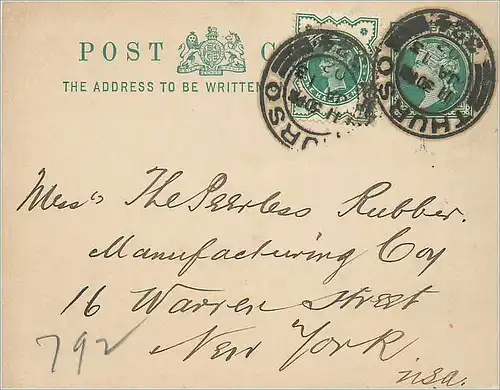 POST C
THE ADDRESS TO BE WRITTEN
THURSO
JA 13
Mess̲rs The Peerless Rubber.
Manufacturing Coy
16 Warren Street
New York
u.s.a.
792